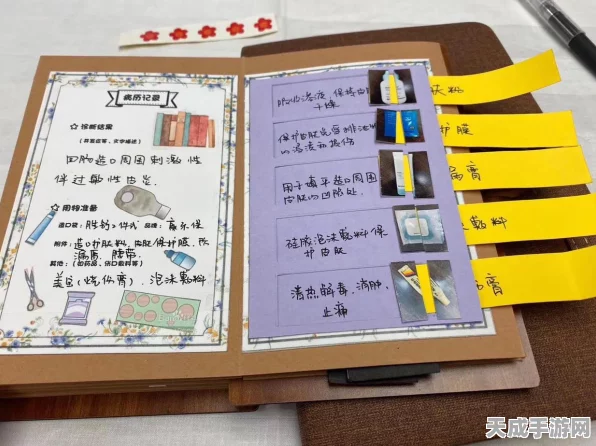 病历记录
☆ 诊断结果
(并发症等,文字描述)
回肠造口周围刺激性
伴过敏性皮炎.
☆ 用物准备
造口袋: 两件式 品牌: 康乐保
附件: 造口护肤粉. 皮肤保护膜. 防
漏膏. 腰带.
其他: (如药品、伤口敷料等)
美宝(烧伤膏). 泡沫敷料
吸收渗液, 保持
干燥
保护皮肤免受排泄物
的浸渍和损伤
用于填平造口周围
皮肤的凹陷处.
硅胶泡沫敷料保
护皮肤
清热解毒. 消肿,
止痛
肤粉
护膜
漏膏
敷料
膏
天成手游网